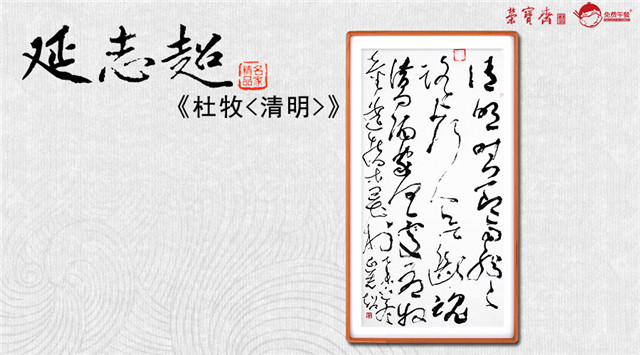 延志超
名家
精品
《杜牧<清明>》
榮寶齋
免费午餐
清明时节雨纷〻
路上行人欲断魂
借问酒家何处有牧
童遥指杏花村